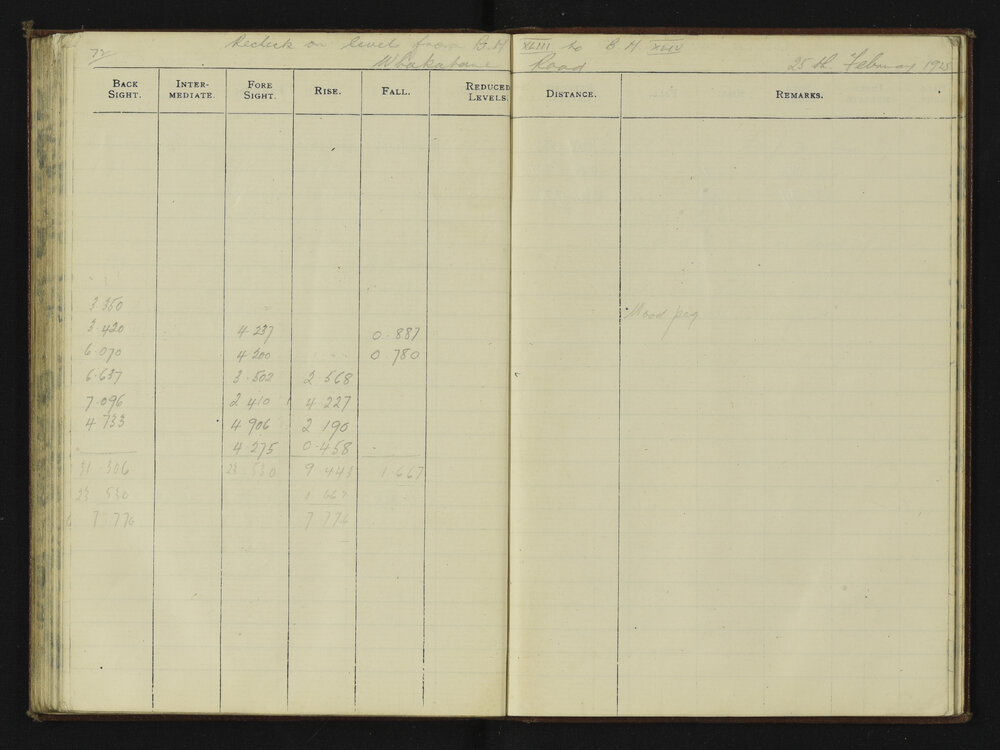 72
on level from B.M XLIII to B M XLIV
Whakatane Road 25 th February 1925
BACK SIGHT. INTER-MEDIATE. FORE SIGHT. RISE. FALL. REDUCED LEVELS. DISTANCE. REMARKS.
3 350 Wood peg
3 420 4 237 0.887
6 070 4 200 0 780
6.637 3.502 2 568
7.096 2 410 4.227
4 733 4 906 2 190
4 275 0.458
31.306 23 530 9.443 1.667
23 530 1 667
7 776 7 776